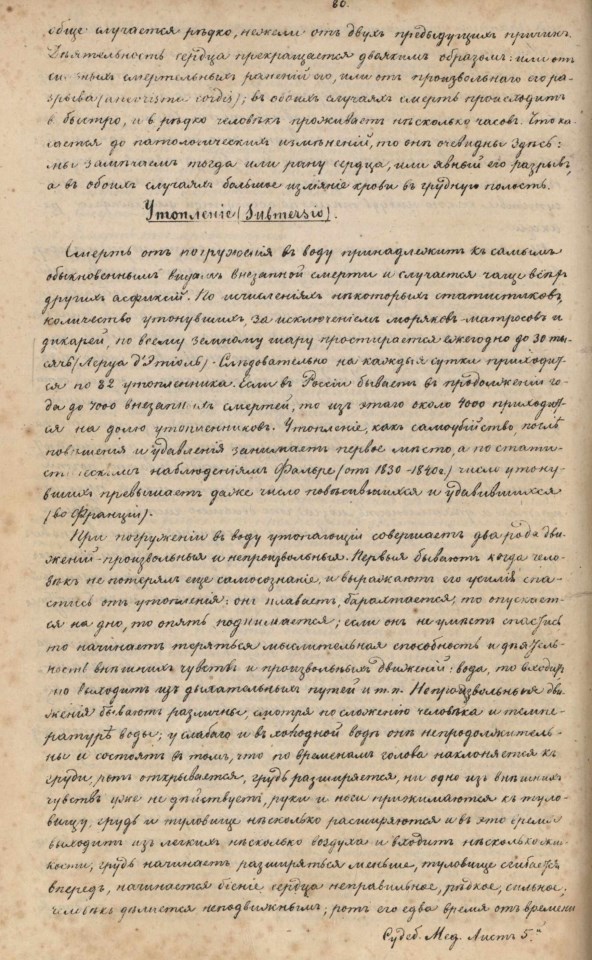 80.
обще случается рѣдко, нежели отъ двухъ предыдущихъ причинъ.
Дѣятельность сердца прекращается двоякимъ образомъ: или отъ
смертельныхъ раненій его, или отъ произвольнаго его ра-
зрыва (anevrisma cordis); въ обоихъ случаяхъ смерть происходитъ
быстро, и рѣдко человѣкъ проживаетъ нѣсколько часовъ. Что ка-
сается до патологическихъ измѣненій, то онѣ очевидны здѣсь:
мы замѣчаемъ тогда или рану сердца, или явный его разрывъ,
а въ обоихъ случаяхъ большое изліяніе крови въ грудную полость.
Утопленіе (Submersio).
Смерть отъ погруженія въ воду принадлежитъ къ самымъ
обыкновеннымъ видамъ внезапной смерти и случается чаще всѣхъ
другихъ асфиксій. По исчисленіяхъ нѣкоторыхъ статистиковъ,
количество утонувшихъ, за исключеніемъ моряковъ-матросовъ и
дикарей, по всему земному шару простирается ежегодно до 30 ты-
сячъ (Леруа д'Этіоль). Слѣдовательно на каждыя сутки приходит-
ся по 82 утопленника. Если въ Россіи бываетъ въ продолженіи го-
да до 7000 внезапныхъ смертей, то изъ этаго около 4000 приходит-
ся на долю утопленниковъ. Утопленіе, какъ самоубійство послѣ
повѣшенія и удавленія занимаетъ первое мѣсто, а по стати-
стическимъ наблюденіямъ Фальре (отъ 1830-1840г.) число утону-
вшихъ превышаетъ даже число повѣсившихся и удавившихся
(во Франціи).
При погруженіи въ воду утопающій совершаетъ два рода дви-
женій - произвольныя и непроизвольныя. Первыя бываютъ когда чело-
вѣкъ не потерялъ еще самосознаніе, и выражаютъ его усилія спа-
стись отъ утопленія: онъ плаваетъ, барахтается, то опускает-
ся на дно, то опять поднимается; если онъ не умѣетъ спастись
то начинаетъ теряться мыслительная способность и дѣятель-
ность внѣшнихъ чувствъ и произвольныхъ движеній: вода, то входитъ
то выходитъ изъ дыхательныхъ путей и т.п. Непроизвольныя дви-
женія бываютъ различны, смотря по сложенію человѣка и темпе-
ратурѣ воды; у слабаго и въ холодной водѣ онѣ непродолжитель-
ны и состоятъ въ томъ, что по временамъ голова наклоняется къ
груди, ротъ открывается, грудь расширяется, ни одно изъ внѣшнихъ
чувствъ уже не дѣйствуетъ, руки и ноги прижимаются къ туло-
вищу, грудь и туловище нѣсколько расширяются и въ это время
выходитъ изъ легкихъ нѣсколько воздуха и входитъ нѣсколько жид-
кости, грудь начинаетъ расширяться меньше, туловище сгибается
впередъ, начинается біеніе сердца неправильное, рѣдкое, сильное;
человѣкъ дѣлается неподвижнымъ; ротъ его едва время отъ времени
Судеб. Мед. Листъ 5.